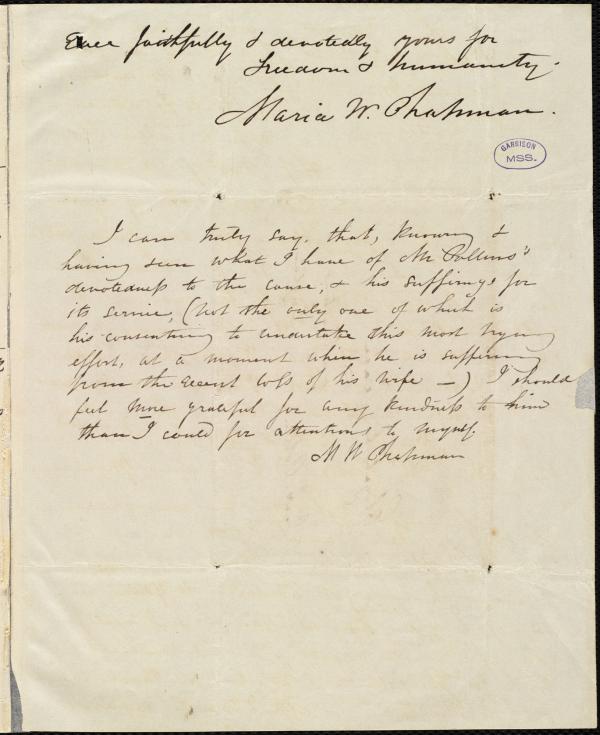 Ever faithfully & devotedly yours for
Freedom & humanity.
Maria W. Chapman.
GARRISON
MSS.
I can truly say, that, knowing &
having seen what I have of Mr Collins's
devotedness to the cause, & his sufferings for
its service, (not the only one of which is
his consenting to undertake this most trying
effort, at a moment when he is suffering
from the recent loss of his wife —) I should
feel more grateful for any kindness to him
than I could for attentions to myself.
M W Chapman